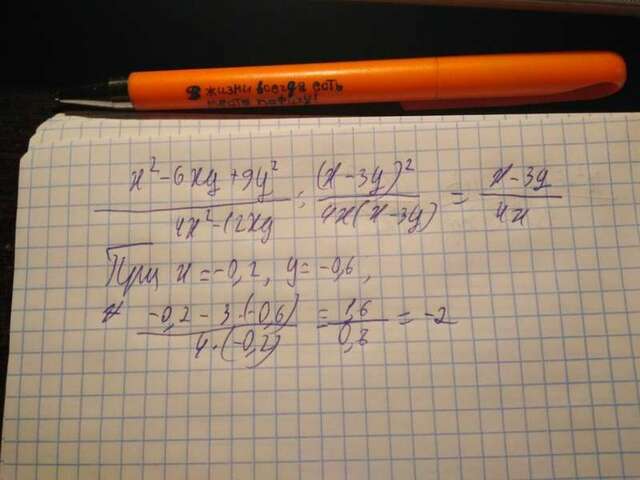 В жизни всегда есть
место пофигу!
x²-6xy+9y² / 4x²-12xy ; (x-3y)² / 4x(x-3y) = x-3y / 4x
При x=-0,2, y=-0,6,
-0,2-3·(-0,6) / 4·(-0,2) = 1,6 / 0,8 = -2